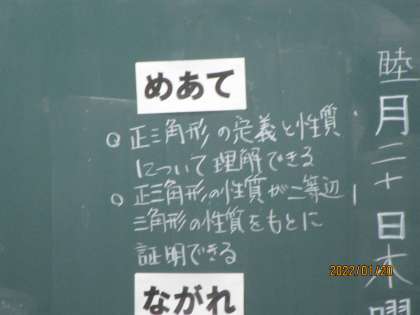 睦月二十日木曜
めあて
○正三角形の定義と性質
について理解できる
○正三角形の性質が二等辺
三角形の性質をもとに
証明できる
ながれ
2022/01/20